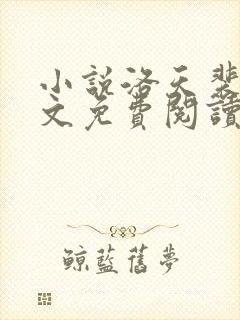 小說洛天裴
文免費閱讀
鯨藍舊夢